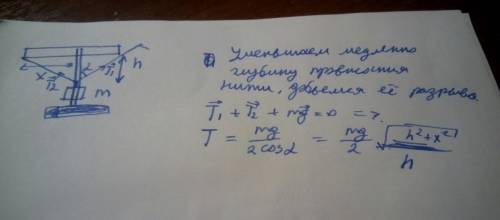 x T⃗₂ α T⃗₁ h
m
① Уменьшаем медленно
глубину провисания
нити, добьемся её разрыва
T⃗₁ + T⃗₂ + mg⃗ = 0 =>
T = mg / 2cosα = mg / 2 · √(h² + x²) / h